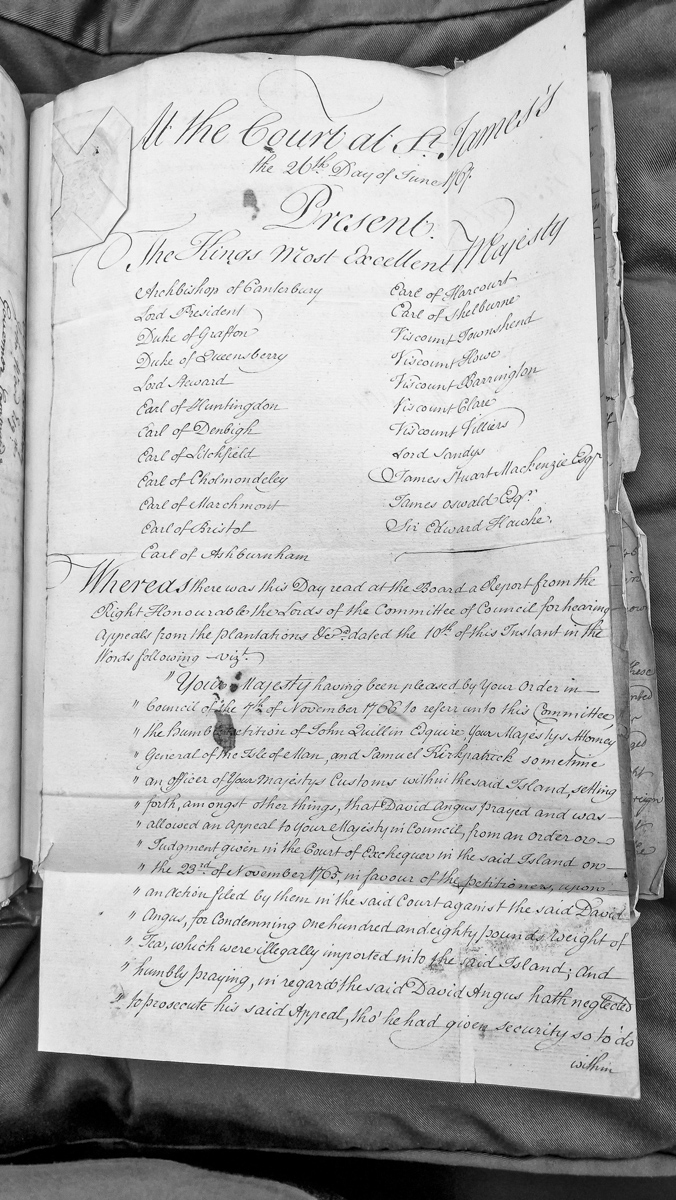 At the Court at St. James's
the 26th Day of June 1767.
Present.
The Kings Most Excellent Majesty
Archbishop of Canterbury
Lord President
Duke of Grafton
Duke of Queensberry
Lord Steward
Earl of Huntingdon
Earl of Denbigh
Earl of Litchfield
Earl of Cholmondeley
Earl of Marchmont
Earl of Bristol
Earl of Ashburnham
Earl of Harcourt
Earl of Shelburne
Viscount Townshend
Viscount Howe
Viscount Barrington
Viscount Clare
Viscount Villiers
Lord Sandys
James Stuart Mackenzie Esqr
James Oswald Esqr.
Sir Edward Hawke.
Whereas there was this Day read at the Board a Report from the
Right Honourable the Lords of the Committee of Council for hearing
Appeals from the Plantations &ca. dated the 10th of this Instant in the
Words following – vizt.
" Your Majesty having been pleased by Your Order in
" Council of the 7th of November 1766 to referr unto this Committee,
" the humble Petition of John Quillin Esquire Your Majestys Attorney
" General of the Isle of Man, and Samuel Kirkpatrick sometime
" an officer of Your Majestys Customs within the said Island, setting
" forth, amongst other things, that David Angus prayed and was
" allowed an Appeal to Your Majesty in Council, from an order or
" Judgment given in the Court of Exchequer in the said Island on
" the 23rd. of November 1765, in favour of the Petitioners, upon
" an Action filed by them in the said Court against the said David
" Angus, for Condemning one hundred and eighty pounds weight of
" Tea, which were illegally imported into the said Island; And
" humbly praying, in regard the said David Angus hath neglected
" to prosecute his said Appeal, tho' he had given security so to do
within